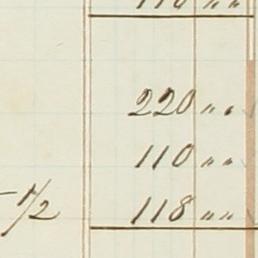 220 " "
110 " "
1/2 118 " "